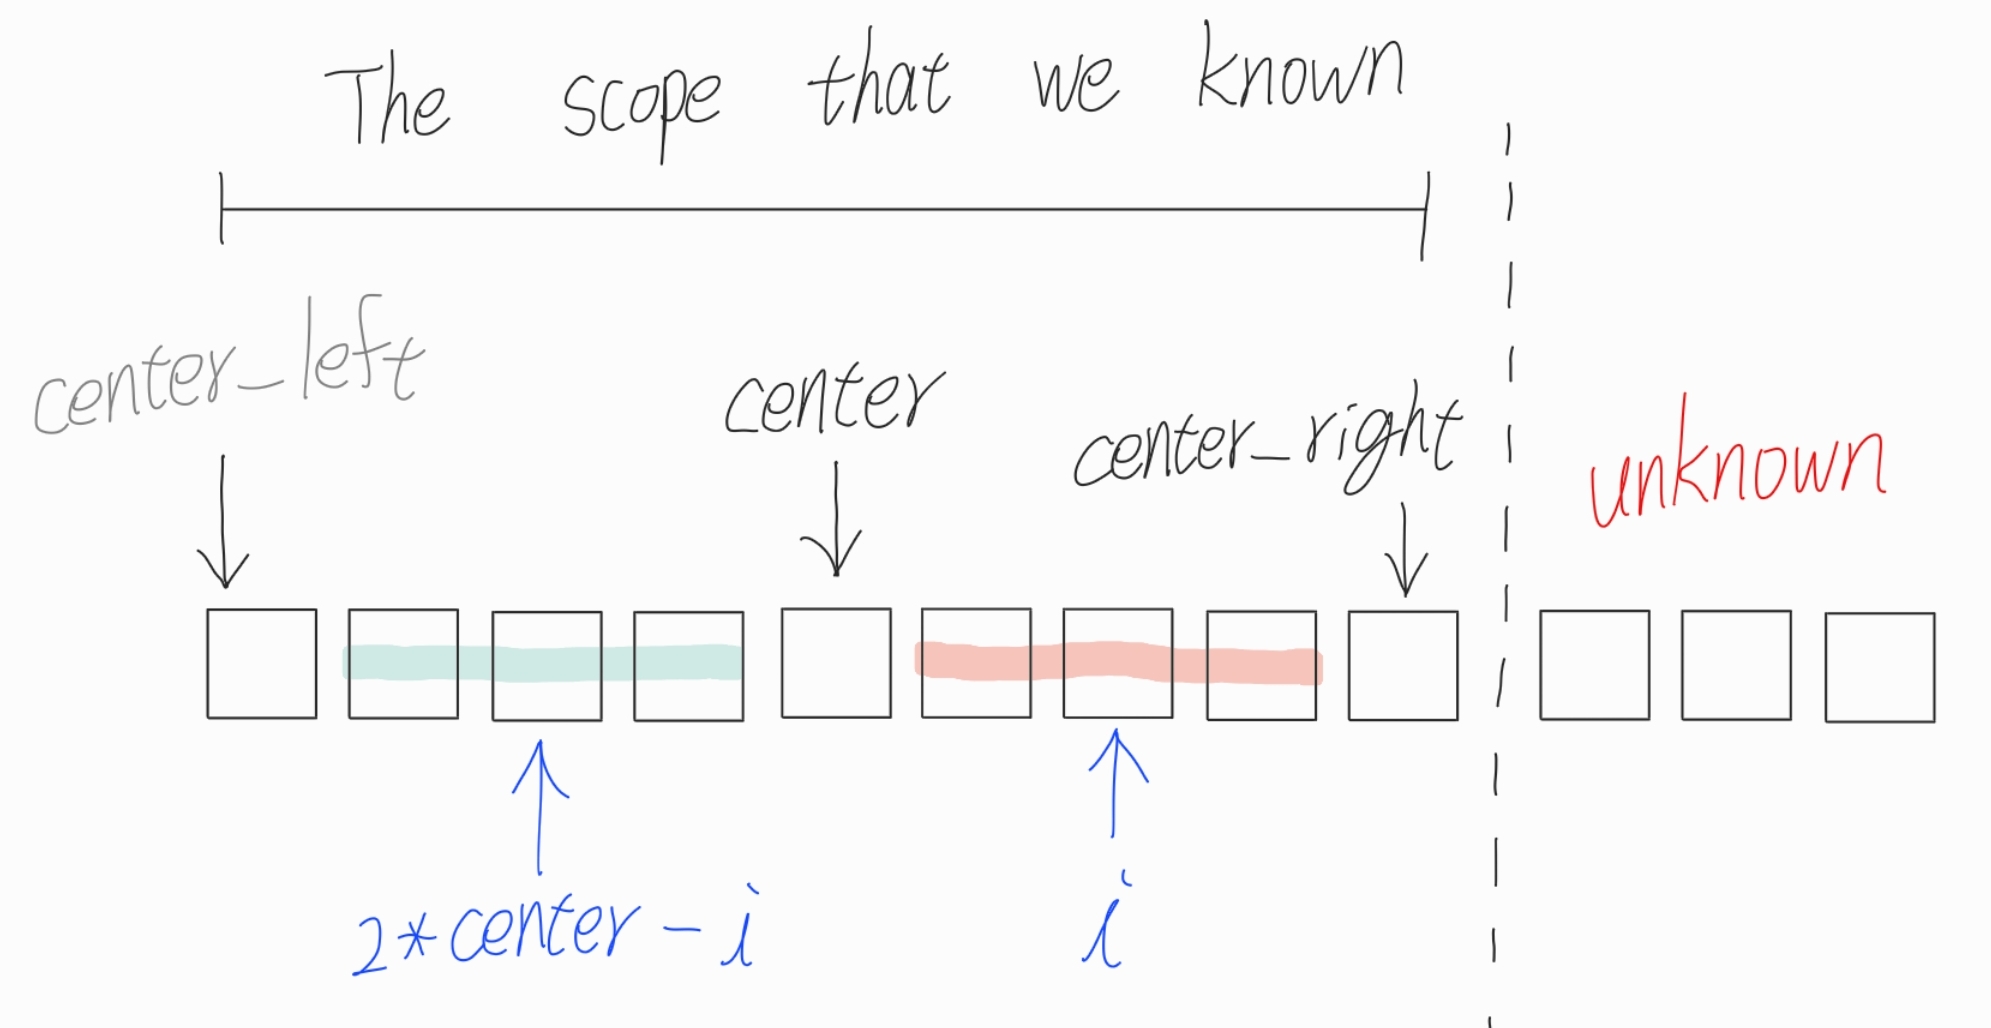 The scope that we known
center_left
center
center_right
unknown
2*center-i
i